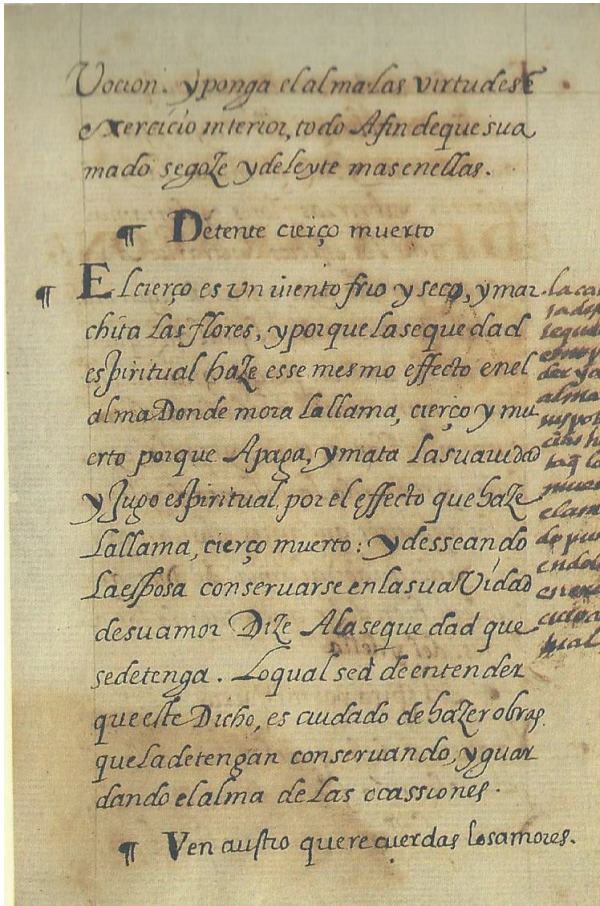 Vocion. y ponga el alma las virtudes é
exercicio interior, todo Afin de que su a
mado se goze y deleyte mas en ellas.
¶ Detente cierço muerto
¶ El cierço es un viento frio y seco, y mar
chita las flores, y porque la seque dad
espiritual haze esse mesmo effecto en el
alma Donde mora la llama, cierço y mu
erto porque Apaga, y mata la suauidad
y Jugo espiritual, por el effecto que haze
La llama, cierço muerto: y desseando
La esposa conservarse en la sua Vidad
de su amor Dize A la seque dad que
se detenga. Lo qual se á de entender
que este Dicho, es cuidado de hazer obras
que la detengan conseruando, y guar
dando el alma de las ocassiones.
¶ Ven austro que recuerdas los amores.
la ca
alma
el am